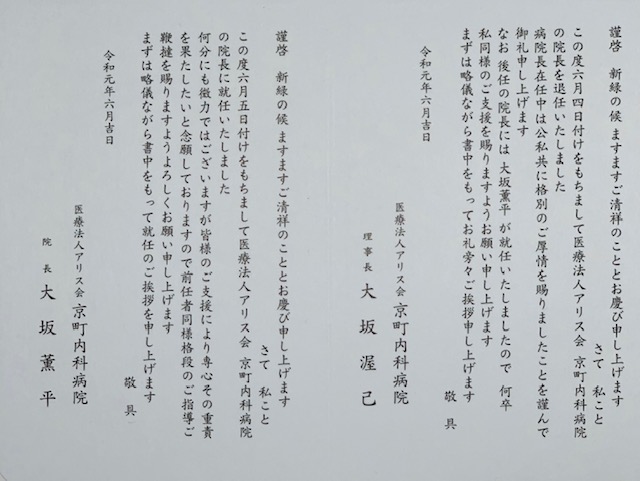 謹啓 新緑の候 ますますご清祥のこととお慶び申し上げます
さて 私こと
この度六月四日付けをもちまして医療法人アリス会 京町内科病院
の院長を退任いたしました
病院長在任中は公私共に格別のご厚情を賜りましたことを謹んで
御礼申し上げます
なお後任の院長には 大坂薫平 が就任いたしましたので 何卒
私同様のご支援を賜りますようお願い申し上げます
まずは略儀ながら書中をもってお礼旁々ご挨拶申し上げます
敬具
令和元年六月吉日
医療法人アリス会 京町内科病院
理事長 大坂渥己
謹啓 新緑の候 ますますご清祥のこととお慶び申し上げます
さて 私こと
この度六月五日付けをもちまして医療法人アリス会 京町内科病院
の院長に就任いたしました
何分にも微力ではございますが皆様のご支援により専心その重責
を果たしたいと念願しておりますので前任者同様格段のご指導ご
鞭撻を賜りますようよろしくお願い申し上げます
まずは略儀ながら書中をもって就任のご挨拶を申し上げます
敬具
令和元年六月吉日
医療法人アリス会 京町内科病院
院長 大坂薫平